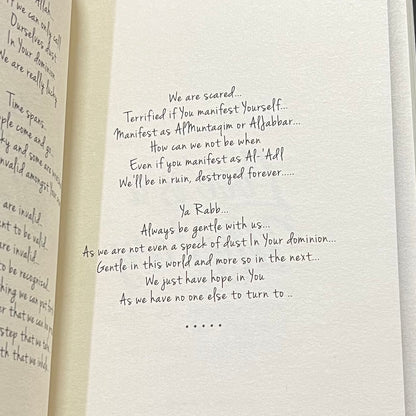 Allah
we can only call
Ourselves dust
In Your dominion
We are really lucky
Time spans..
come and go...
and some are
amongst
are invalid..
to be valid..
are invalid..
to be recognised..
we can put
that we can
step that we
that we
We are scared...
Terrified if You manifest Yourself...
Manifest as AlMuntaqim or AlJabbar...
How can we not be when
Even if you manifest as Al-'Adl
We'll be in ruin, destroyed forever.....
Ya Rabb...
Always be gentle with us...
As we are not even a speck of dust In Your dominion...
Gentle in this world and more so in the next...
We just have hope in You
As we have no one else to turn to ..
.....